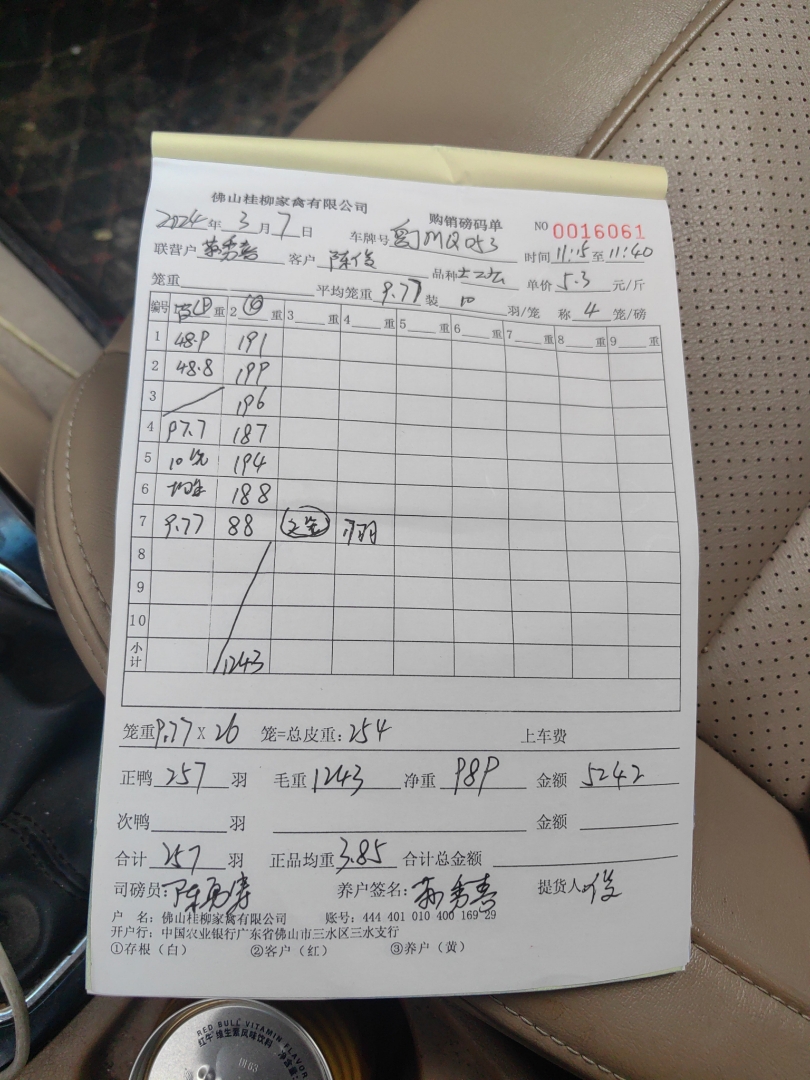 佛山桂柳家禽有限公司 购销磅码单 NO 0016061
2024年 3月 7日 车牌号 MQ053 时间 11:15 至 11:40
联营户 客户 陈俊 品种 单价 5.3 元/斤
笼重 平均笼重 9.77 装 10 羽/笼 称 4 笼/磅
编号 重 2 重 3 重 4 重 5 重 6 重 7 重 8 重 9 重
1 48.9 191
2 48.8 199
3 196
4 97.7 187
5 10笼 194
6 188
7 9.77 88 7羽
8
9
10
小计 1243
笼重 9.77 X 26 笼=总皮重: 254 上车费
正鸭 257 羽 毛重 1243 净重 989 金额 5242
次鸭 羽 金额
合计 257 羽 正品均重 3.85 合计总金额
司磅员: 养户签名: 提货人: 俊
户 名: 佛山桂柳家禽有限公司 账号: 444 401 010 400 169 29
开户行: 中国农业银行广东省佛山市三水区三水支行
①存根(白) ②客户(红) ③养户(黄)
RED BULL VITAMIN FLAVOR
红牛维生素风味饮料
净含量: